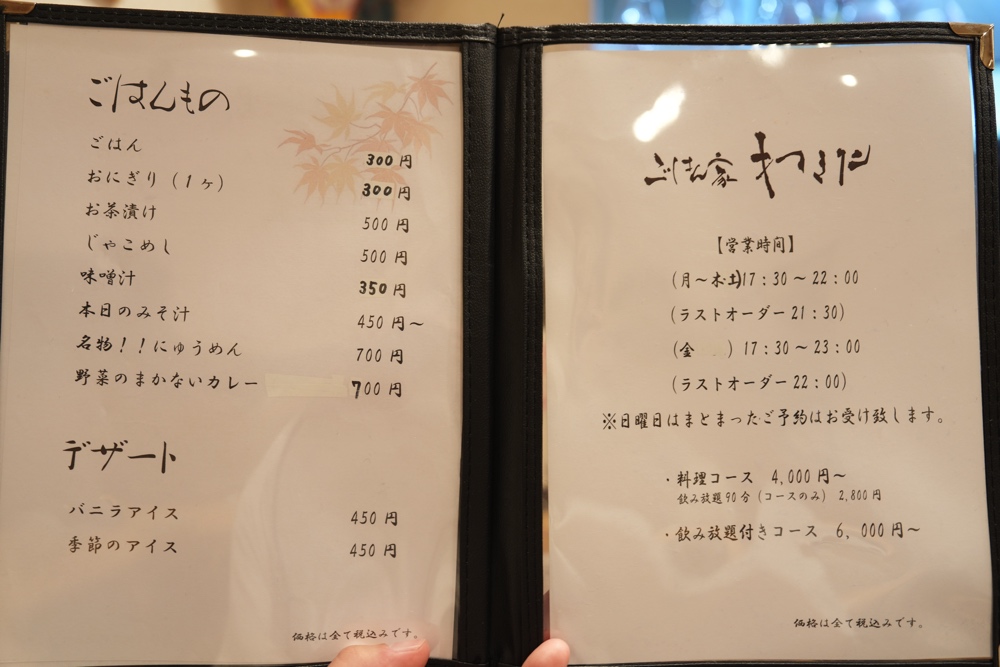 ごはんもの
ごはん 300円
おにぎり（1ヶ） 300円
お茶漬け 500円
じゃこめし 500円
味噌汁 350円
本日のみそ汁 450円～
名物！！にゅうめん 700円
野菜のまかないカレー 700円
デザート
バニラアイス 450円
季節のアイス 450円
価格は全て税込みです。
ごはん家
【営業時間】
（月～木・土）17：30～22：00
（ラストオーダー21：30）
（金　　）17：30～23：00
（ラストオーダー22：00）
※日曜日はまとまったご予約はお受け致します。
・料理コース　4,000円～
飲み放題90分（コースのみ）　2,800円
・飲み放題付きコース　6,000円～
価格は全て税込みです。